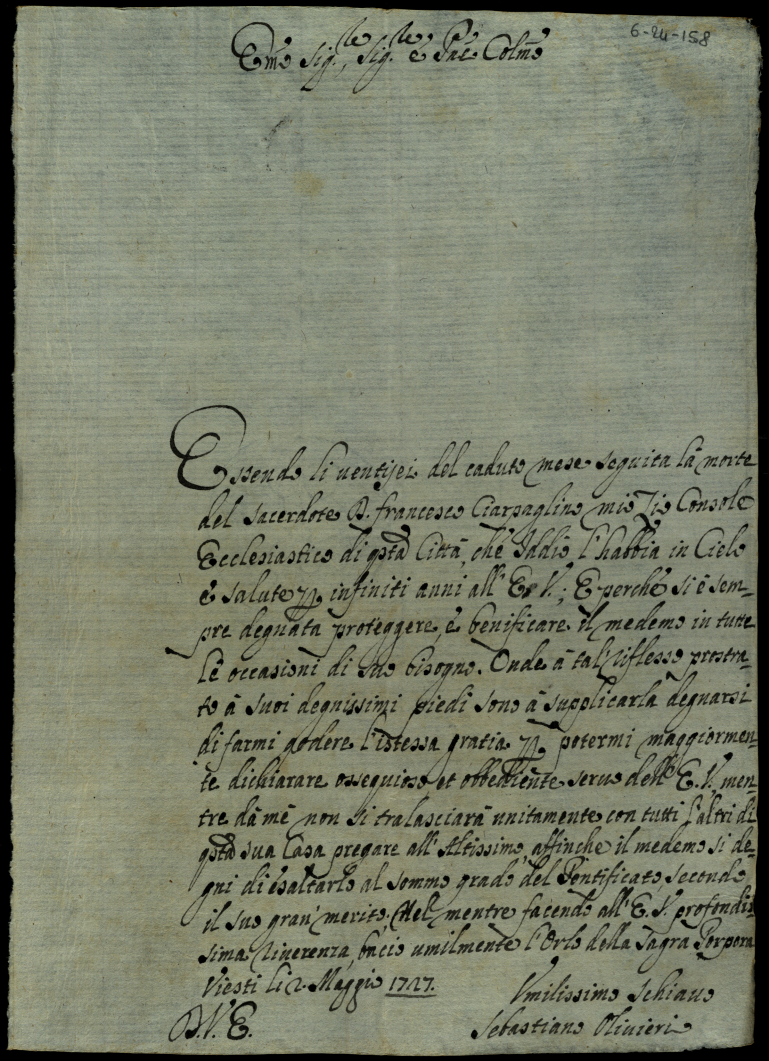 6-24-158
Emo Sig.re, Sig.re e Pne Colmo
Essendo li uentisei del caduto mese seguita là morte
del Sacerdote D. Francesco Ciarpaglino mio Zio Console
Ecclesiastico di qsta Città, chè Iddio l'habbia in Cielo
è salute p infiniti anni all'E. V.; E perchè si è sem=
pre degnata proteggere, è benificare il medemo in tutte
lè occasioni di suo bisogno. Onde à tal riflesso prostra=
to à suoi degnissimi piedi sono à supplicarla degnarsi
di farmi godere l'istessa gratia p potermi maggiormen=
te dichiarare ossequioso et obbediente seruo dell'E. V. men=
tre dà mè non si tralasciarà unitamente con tutti l'altri di
qsta sua Casa pregare all'Altissimo, affinche il medemo si de=
gni di esaltarlo al sommo grado del Pontificato, secondo
il suo gran' merito. Nel mentre facendo all'E. V. profondis=
sima riuerenza, bacio umilmente l'Orlo della Sagra Porpora
Viesti li 2. Maggio 1727.
Vmilissimo Schiauo
D. V. E.
Sebastiano Oliuieri